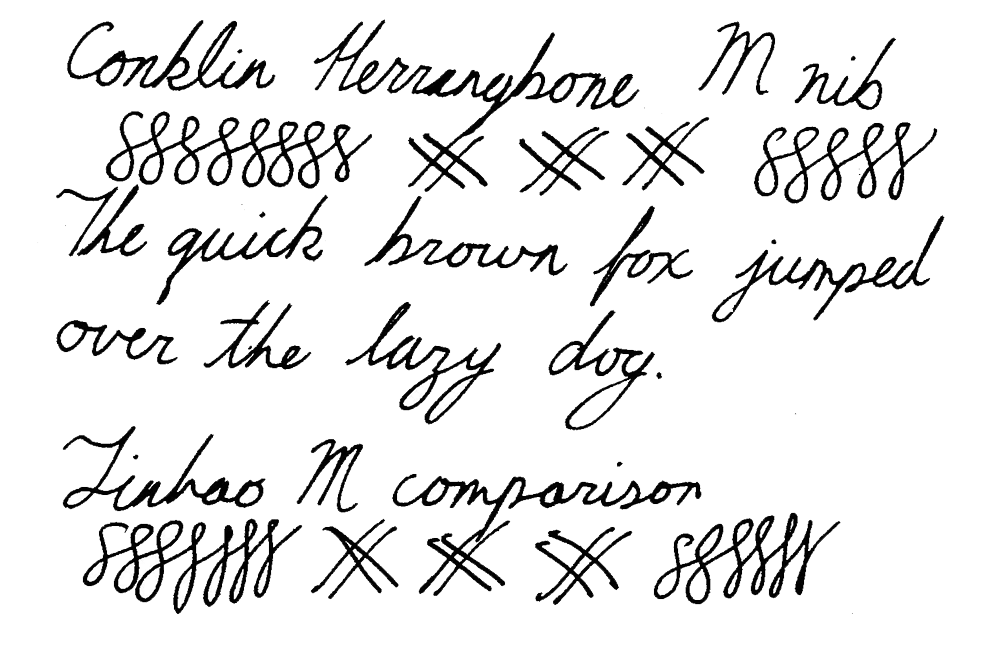 Conklin Herringbone M nib
The quick brown fox jumped
over the lazy dog.
Jinhao M comparison